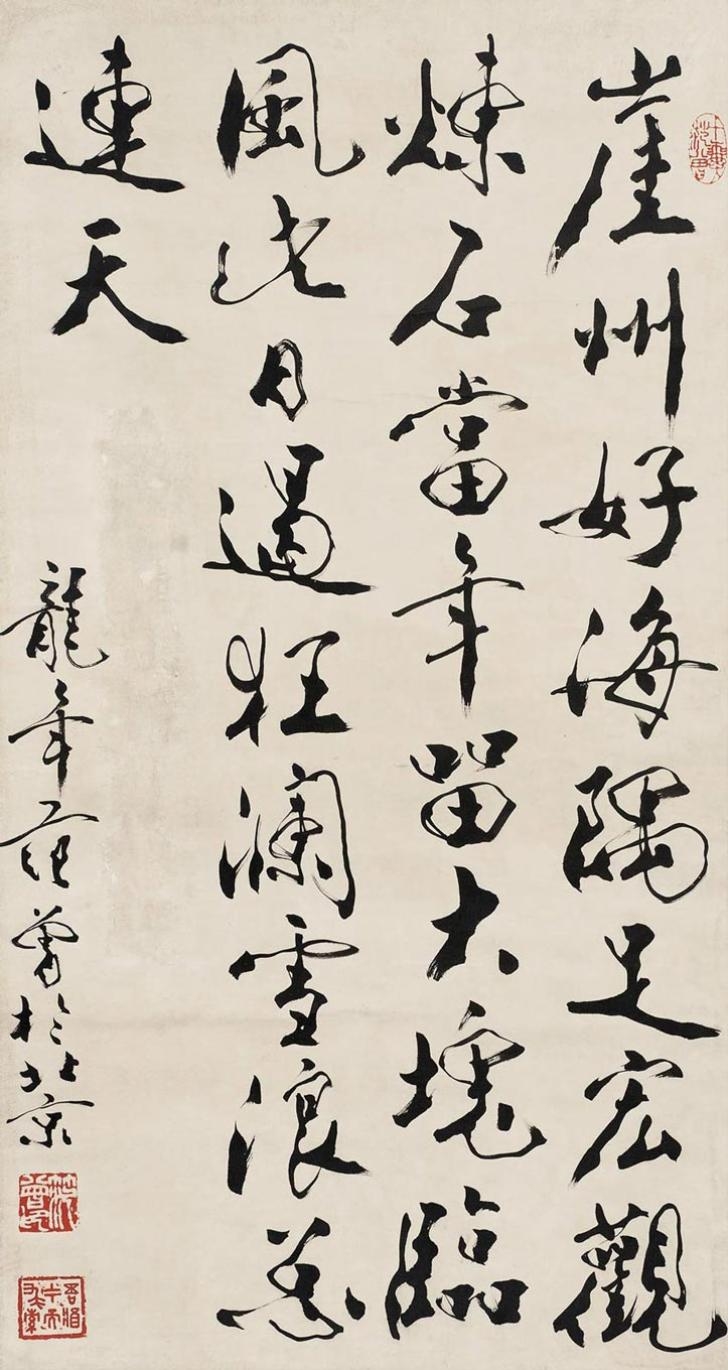 崖州好海隅足宏觀
煉石當年留大塊臨
風此日遏狂瀾雪浪
連天
龍年范曾於北京